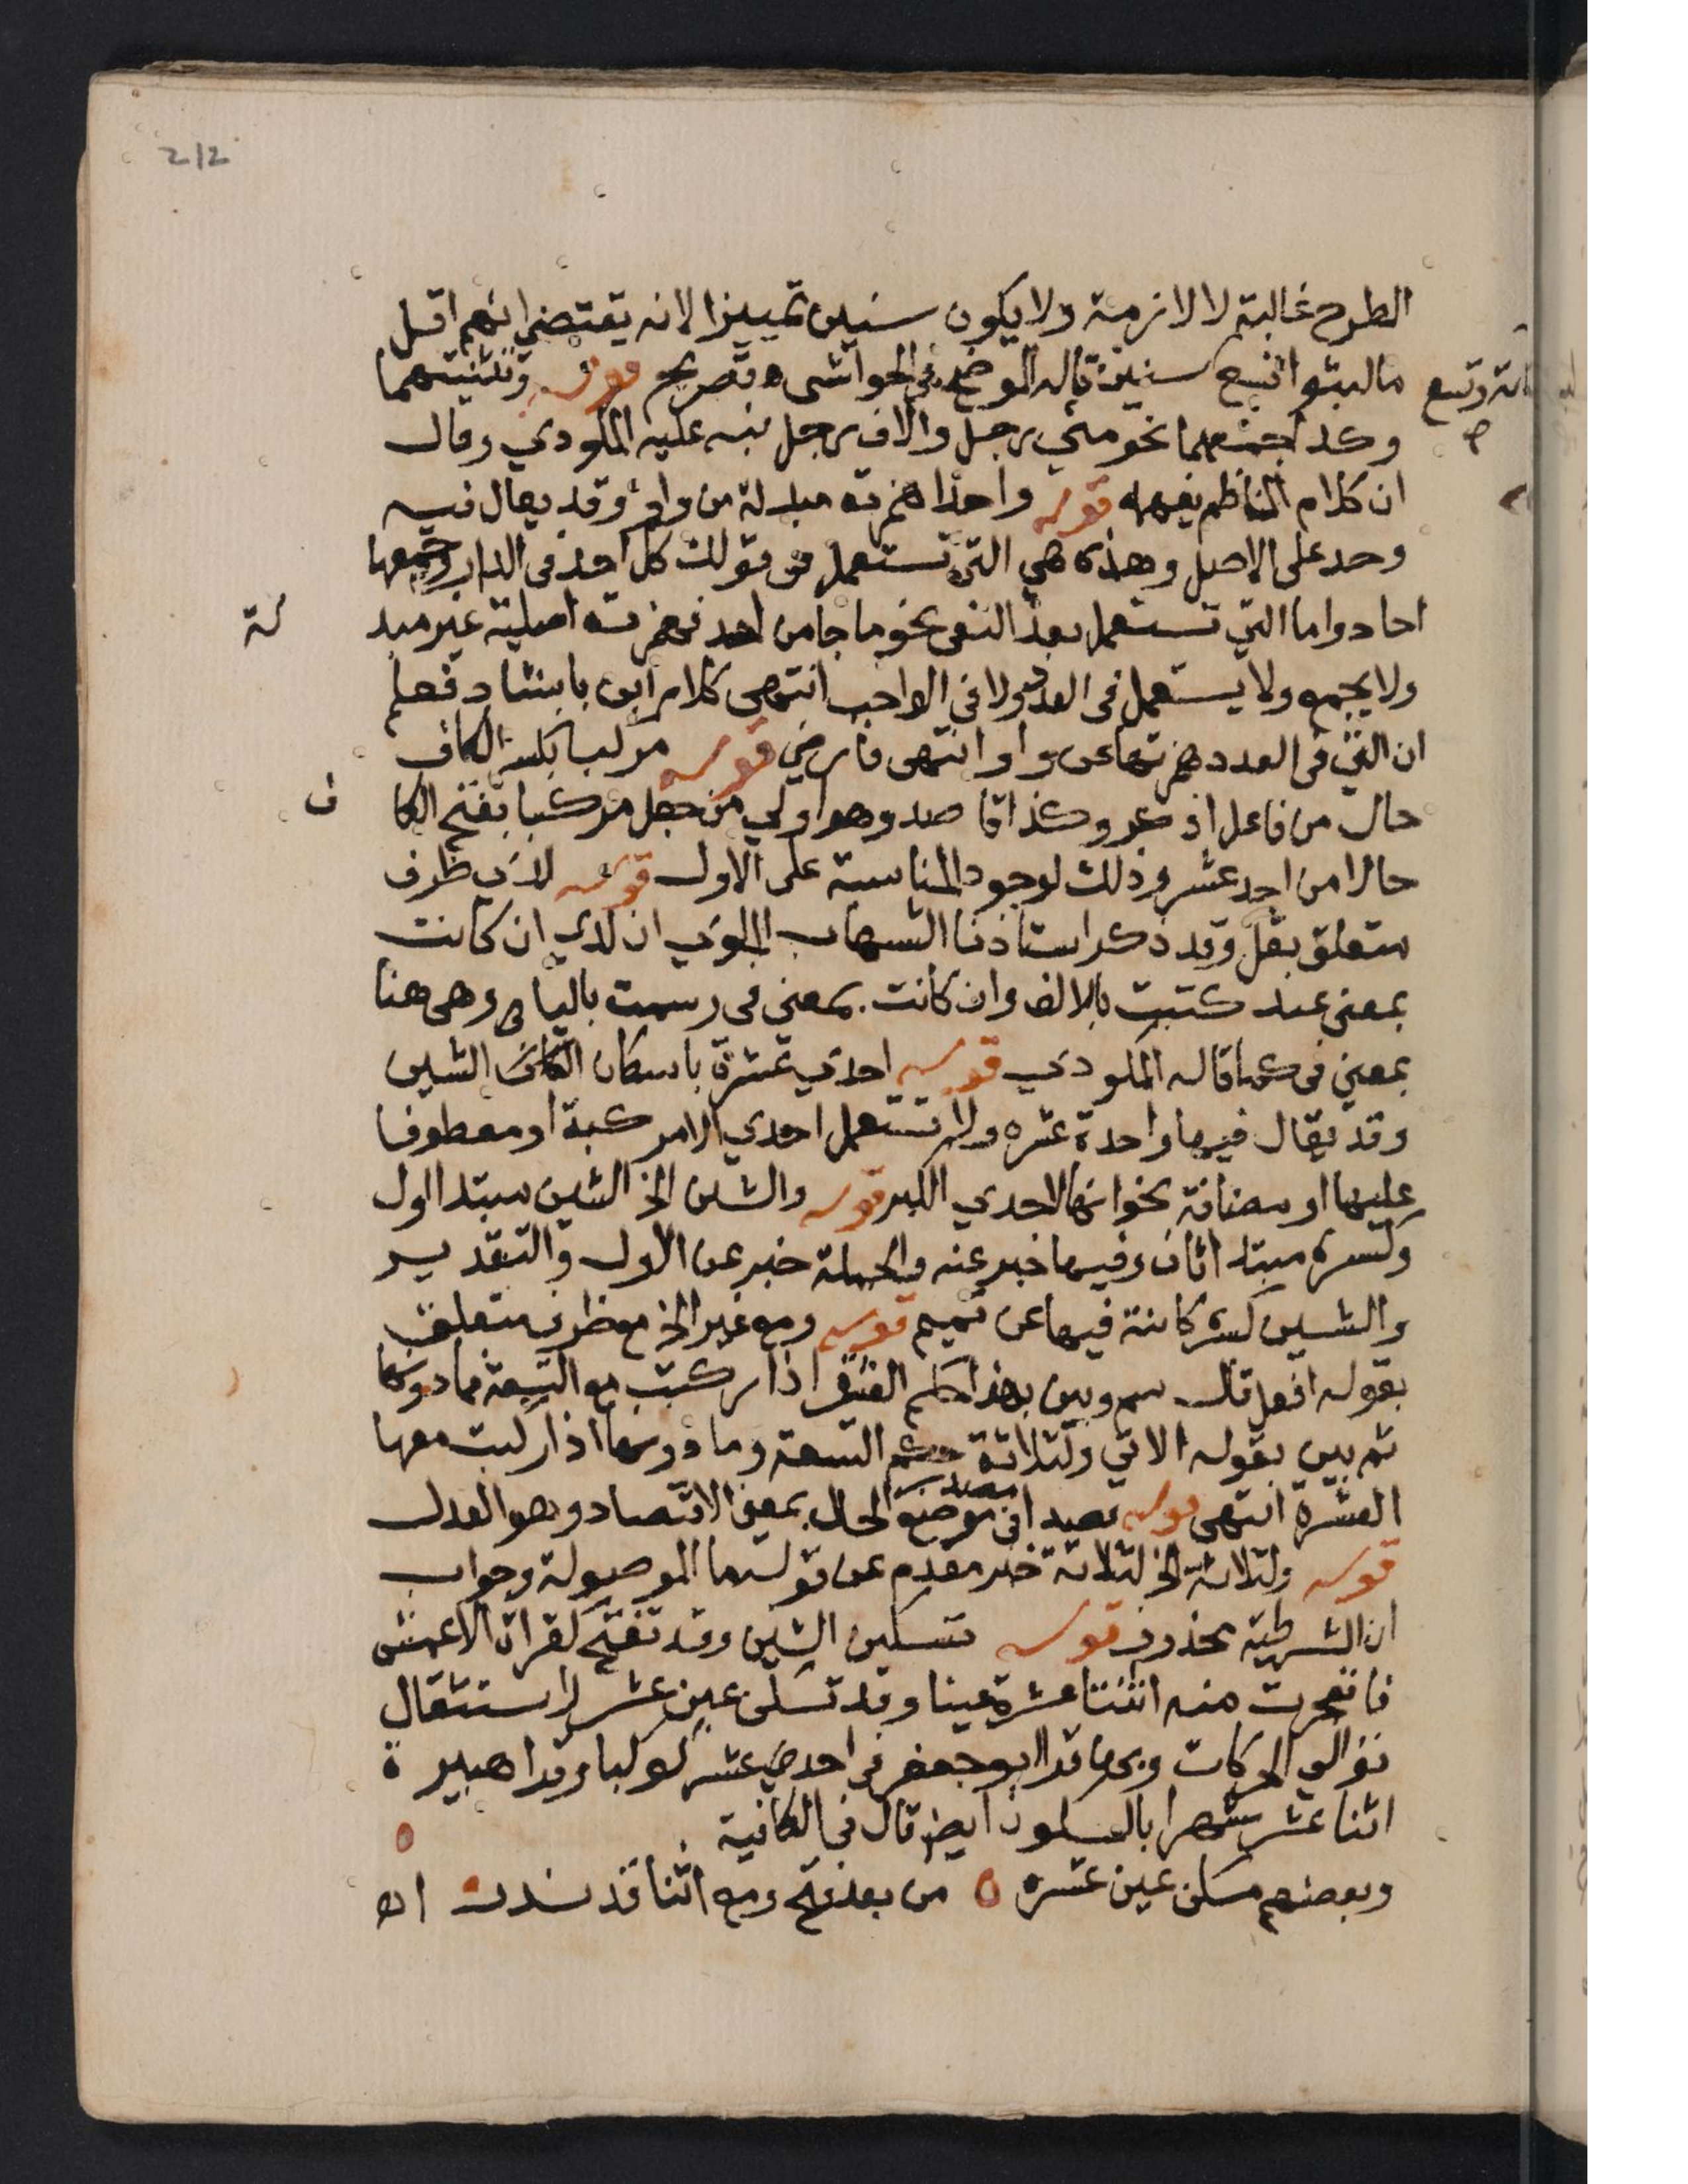 212
الطرح غالبة لا لازمة ولا يكون سنين تمييزا لانه يقتضي انهم اقل
ما لبثوا تسع سنين قاله الموضح في الحواشي ه تصريح قوله وتثنيتهما
مائة وتسع
وكذا جمعهما نحو مئي رجل والاف رجل نبه عليه المكودي وقال
ان كلام الناظم يفهمه قوله واحدا همزته مبدلة من واو وقد يقال فيه
وحد على الاصل وهذه هي التي تستعمل في قولك كل احد في الدار وجمعها
احاد واما التي تستعمل بعد النفي نحو ما جا من احد فهمزته اصلية غير مبد
لة
ولا يجمع ولا يستعمل في العدد ولا في الواجب انتهى كلام ابن بابشاد فعلم
ان التي في العدد همزتها عن واو انتهى فارضي قوله مركبا بكسر الكاف
حال من فاعل اذكر وكذا قاصد وهو اولي من جعل مركبا بفتح الكا
ف
حالا من احد عشر وذلك لوجود المناسبة على الاول قوله لدي ظرف
متعلق بقل وقد ذكر استاذنا الشهاب الملوي ان لدي ان كانت
بمعنى عند كتبت بالالف وان كانت بمعنى في رسمت باليا وهي هنا
بمعنى في كما قاله المكودي قوله احدي عشرة باسكان الشين
وقد يقال فيها واحدة عشره ولا تستعمل احدي الا مركبة او معطوفا
عليها او مضافة نحو انها لاحدي الكبر قوله والشين الخ الشين مبتدا اول
وكسره مبتدا ثان وفيها خبر عنه والجملة خبر عن الاول والتقدير
والشين كسره كائنة فيها عن تميم قوله ومع غير الخ مع ظرف متعلق
بقوله افعل قال سم وبين بهذا حكم العشرة اذا ركبت مع التسعة فما دونها
ثم بين بقوله الاتي ولثلاثة حكم التسعة وما دونها اذا ركبت معها
العشرة انتهى قوله قصدا في موضع الحال بمعنى الاقتصاد وهو العدل
قوله ولثلاثة الخ لثلاثة خبر مقدم عن قوله ما الموصولة وجواب
ان الشرطية محذوف قوله تسكين الشين وقد تفتح كقراة الاعمش
فانفجرت منه اثنتا عشرة عينا وقد تسكن عين عشر لاستثقال
توالي الحركات وبها قرا ابو جعفر في احد عشر كوكبا وقرا هبيرة
اثنا عشر شهرا بالسكون ايضا قال في الكافية
وبعضهم مسكن عين عشره من بعد فتح ومع اثنا قد ندرت اه